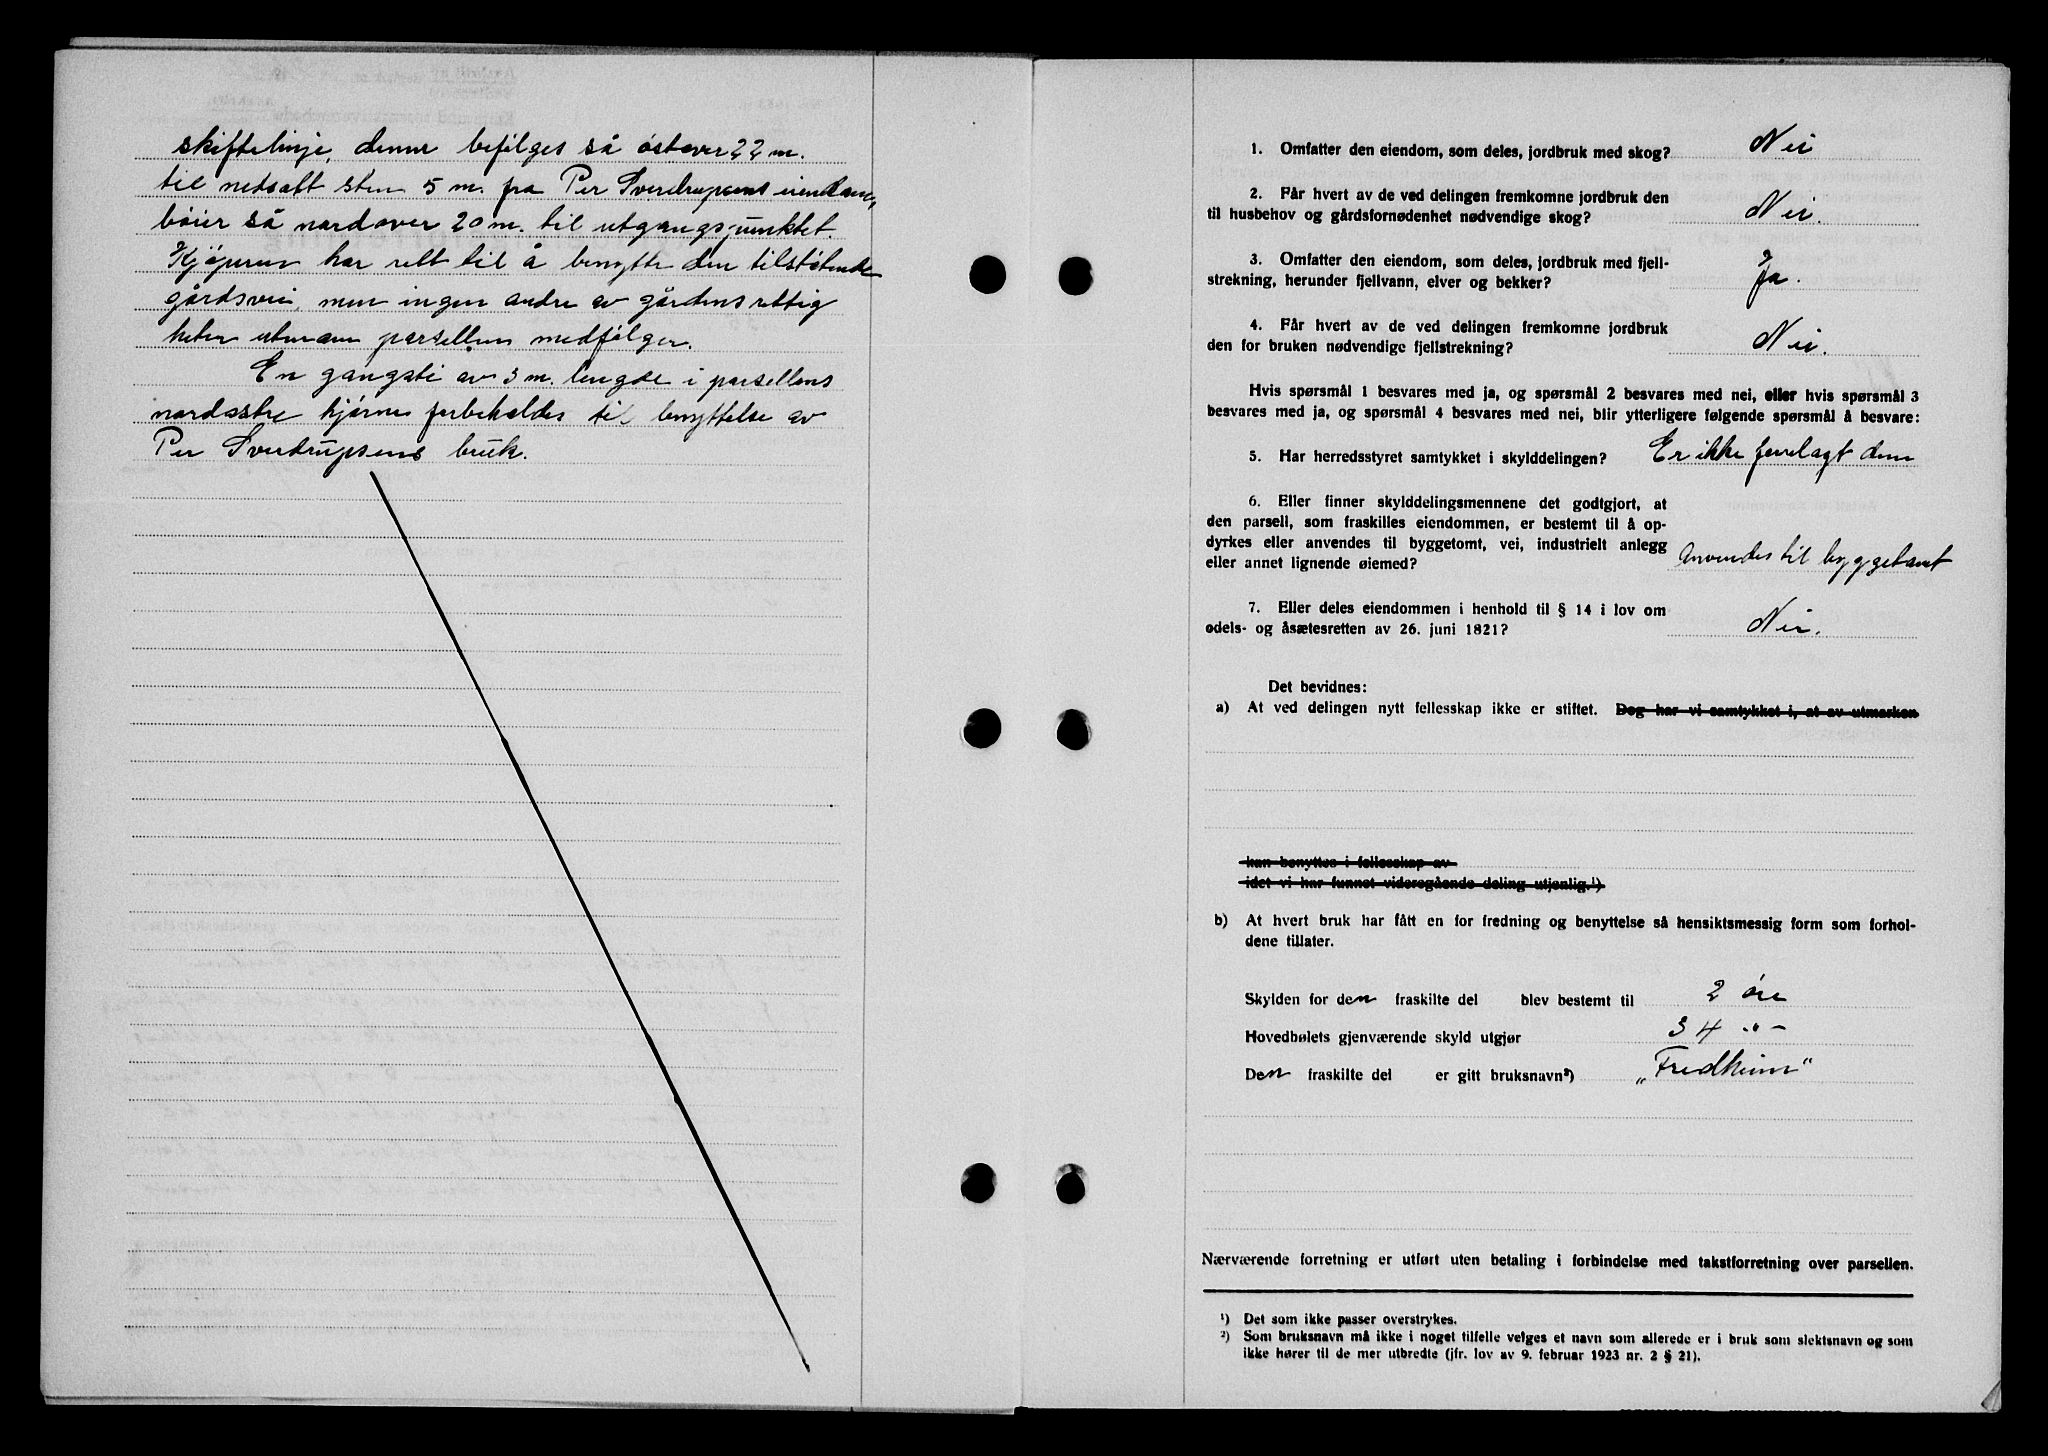 skiftelinje, denne befølges så østover 22 m.
til nedsatt sten 5 m. fra Per Sverdrupsens eiendom,
bøier så nordover 20 m. til utgangspunktet.
Kjøperen har rett til å benytte den tilstøtende
gårdsvei, men ingen andre av gårdens rettig
heter utenom parsellen medfølger.
En gangsti av 3 m. lengde i parsellens
nordøstre hjørne forbeholdes til benyttelse av
Per Sverdrupsens bruk.
1. Omfatter den eiendom, som deles, jordbruk med skog? Nei
2. Får hvert av de ved delingen fremkomne jordbruk den
til husbehov og gårdsfornødenhet nødvendige skog? Nei.
3. Omfatter den eiendom, som deles, jordbruk med fjell-
strekning, herunder fjellvann, elver og bekker? Ja.
4. Får hvert av de ved delingen fremkomne jordbruk
den for bruken nødvendige fjellstrekning? Nei.
Hvis spørsmål 1 besvares med ja, og spørsmål 2 besvares med nei, eller hvis spørsmål 3
besvares med ja, og spørsmål 4 besvares med nei, blir ytterligere følgende spørsmål å besvare:
5. Har herredsstyret samtykket i skylddelingen? Er ikke forelagt dem
6. Eller finner skylddelingsmennene det godtgjort, at
den parsell, som fraskilles eiendommen, er bestemt til å op-
dyrkes eller anvendes til byggetomt, vei, industrielt anlegg
eller annet lignende øiemed? Anvendes til byggetomt
7. Eller deles eiendommen i henhold til § 14 i lov om
odels- og åsætesretten av 26. juni 1821? Nei.
Det bevidnes:
a) At ved delingen nytt fellesskap ikke er stiftet. Dog har vi samtykket i, at av utmarken
kan benyttes i fellesskap av
idet vi har funnet videregående deling utjenlig.¹)
b) At hvert bruk har fått en for fredning og benyttelse så hensiktsmessig form som forhol-
dene tillater.
Skylden for den fraskilte del blev bestemt til 2 øre
Hovedbølets gjenværende skyld utgjør 34 -"-
Den fraskilte del er gitt bruksnavn²) „Fredheim"
Nærværende forretning er utført uten betaling i forbindelse med takstforretning over parsellen.
¹) Det som ikke passer overstrykes.
²) Som bruksnavn må ikke i noget tilfelle velges et navn som allerede er i bruk som slektsnavn og som
ikke hører til de mer utbredte (jfr. lov av 9. februar 1923 nr. 2 § 21).